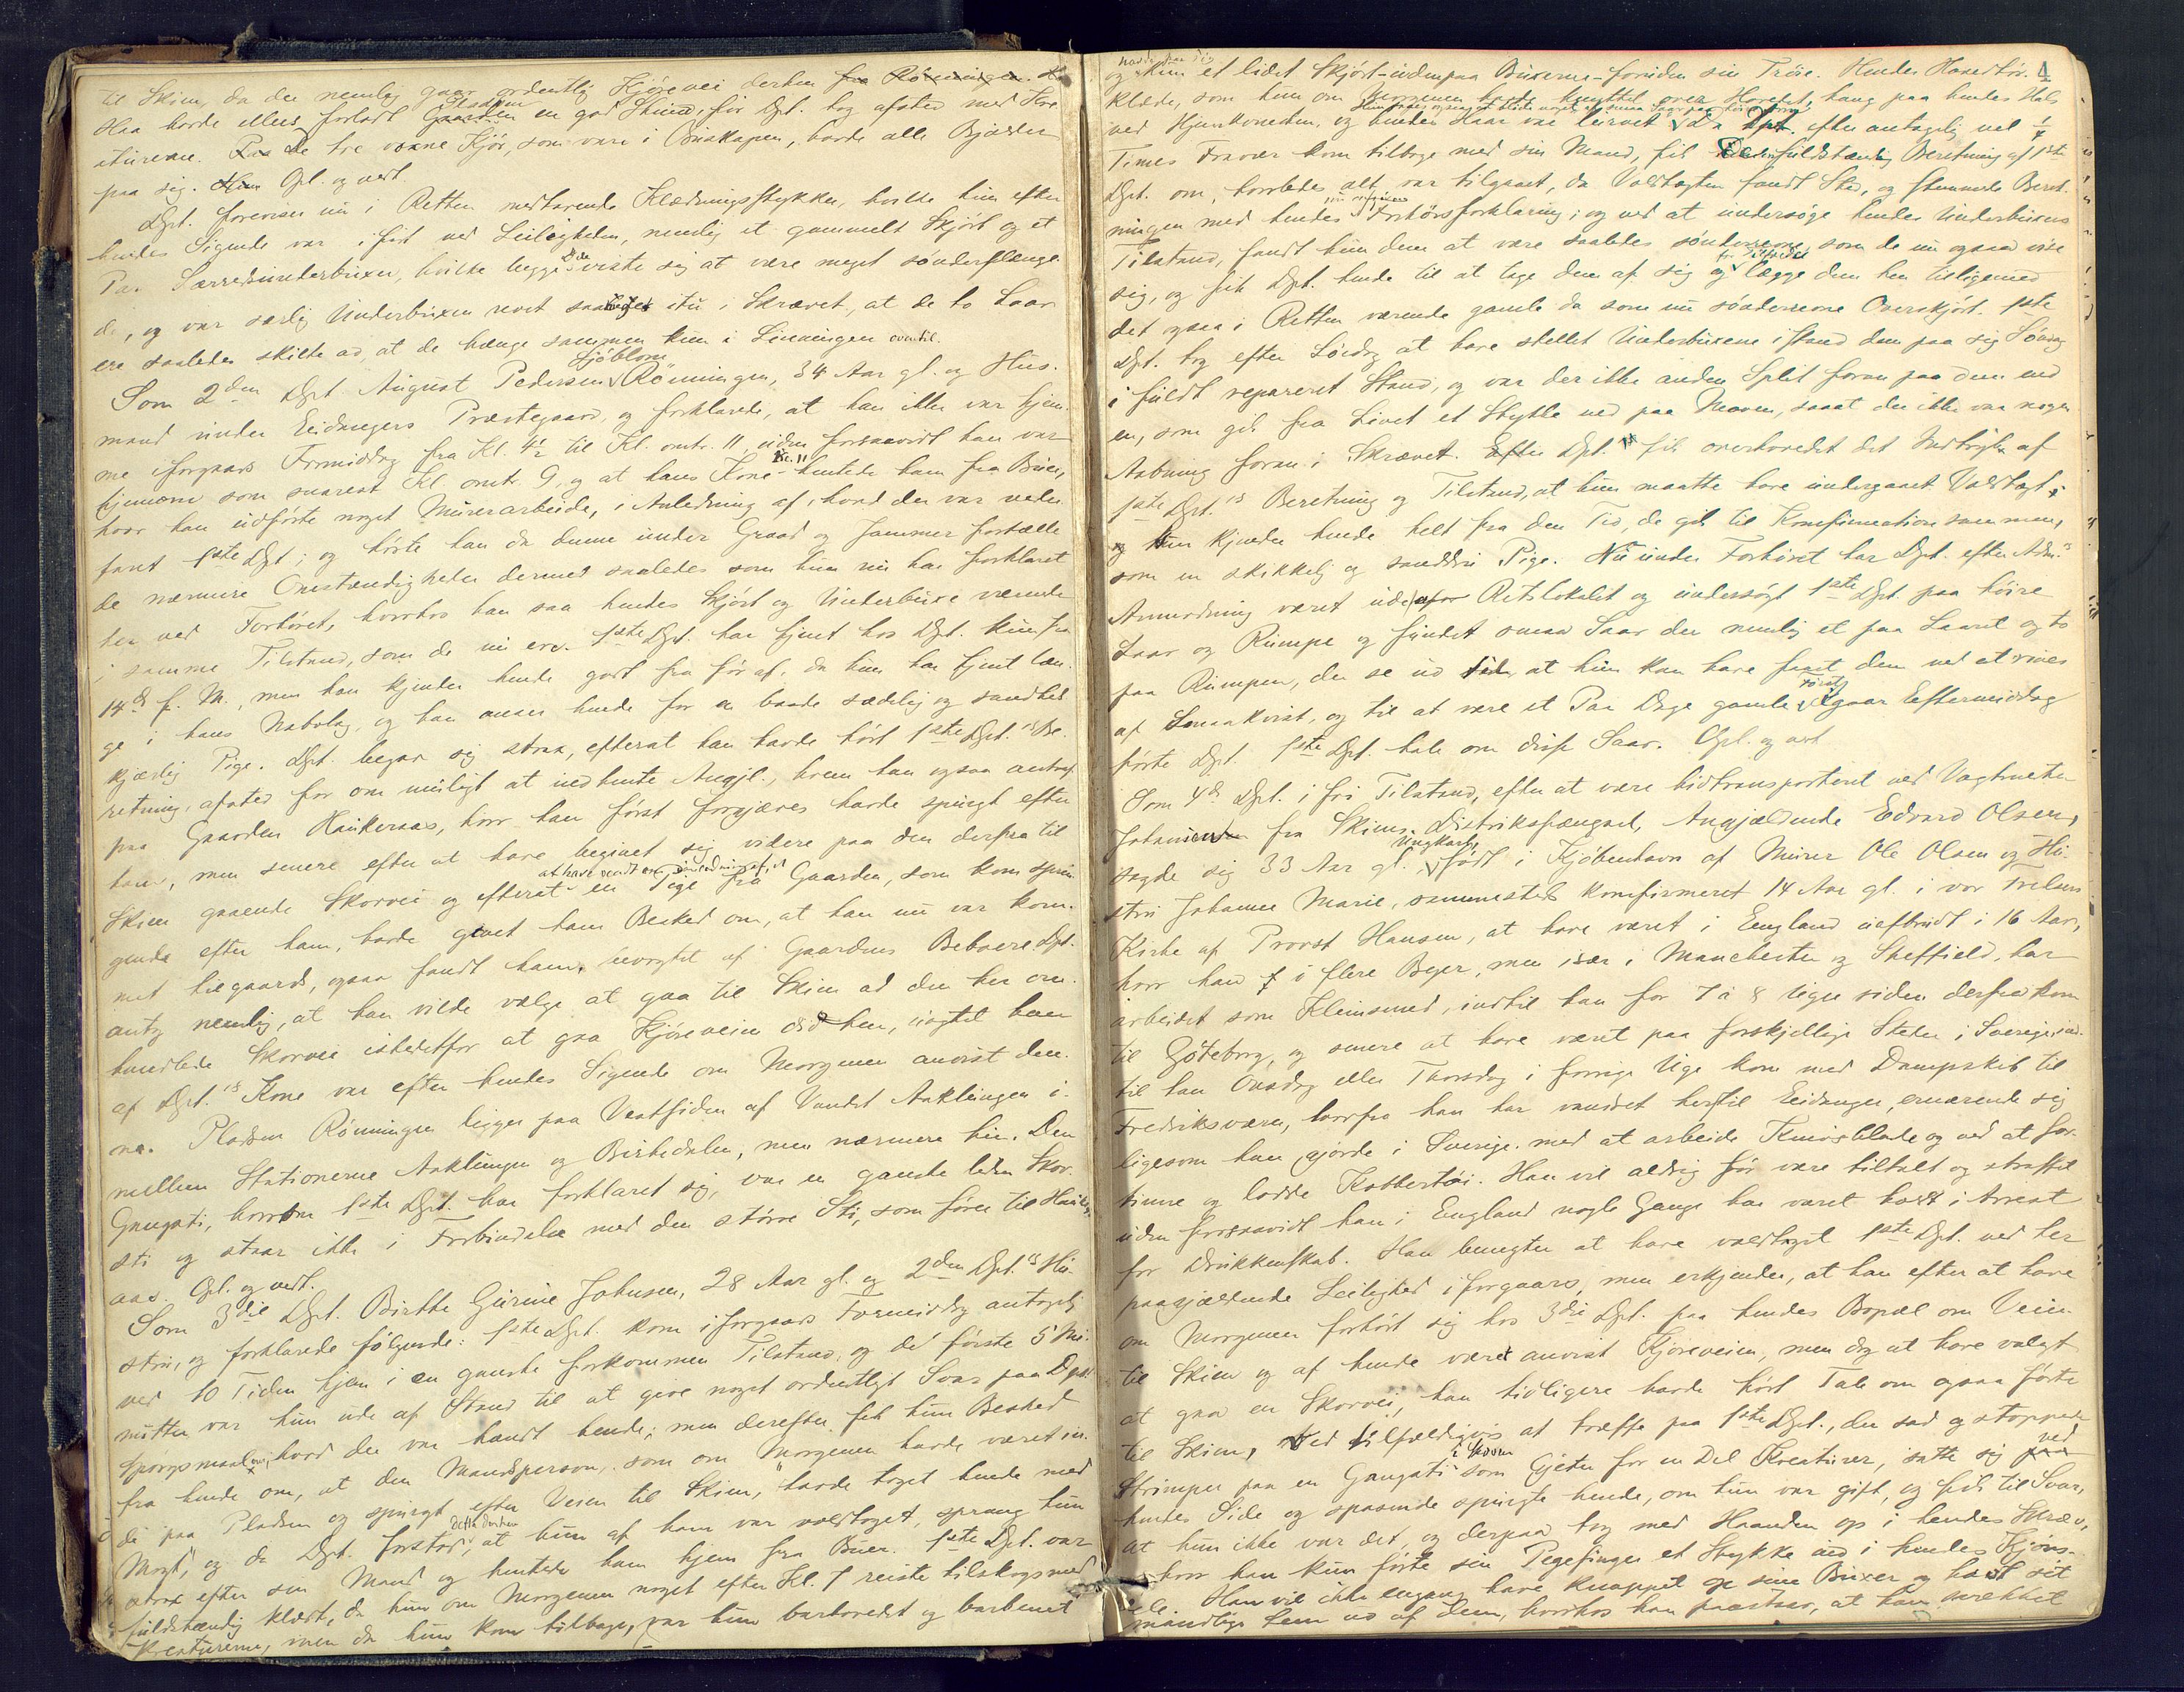 til Skien, da der nemlig gaar ordentlig Kjørevei derhen fra Rönningen.
Han havde ellers forladt Gaarden Pladsen en god Stund, før Dpt. tog afsted med Kre
aturerne. De tre vaxne Kjör, som vare i Buskapen, havde alle Bjælder
paa sig. Opl. og vedt.
Dpt. foreviser nu i Retten medtavende Klædningsstykker, hvilke hun efter
hendes Sigende var iført ved Leiligheden, nemlig et gammelt Skjört og et
Par Lærredsunderbuxer, hvilke begge Dele viste sig at være meget sönderflænge
de, og var særlig Underbuxen revet saaledes itu i Skrævet, at de to Laar
ere saaledes skilte ad, at de hænge sammen kun i Linningen oventil.
Som 2den Dpt. August Pedersen Sjöblom Rönningen, 34 Aar gl. og Hus-
mand under Eidangers Præstegaard, og forklarede, at han ikke var hjem-
me iforgaars Formiddag fra Kl. 4½ til Kl. omtr. 11 uden forsaavidt han var
hjemme som snarest Kl. omtr. 9, og at hans Kone Kl. 11 hentede ham fra Buer,
hvor han udførte noget Murerarbeide, i Anledning af, hvad der var veder-
faret 1ste Dpt; og hørte han da denne under Graad og Jammer fortælle
de nærmere Omstændigheder dermed saaledes som hun nu har forklaret
her ved Forhöret, hvorhos han saa hendes Skjört og Underbuxe værende
i samme Tilstand, som de nu ere. 1ste Dpt. har tjent hos Dpt. kun fra
14de f. M., men han kjender hende godt fra før af, da hun har tjent læn-
ge i hans Nabolag, og han anser hende for en baade sædelig og sandhed-
kjærlig Pige. Dpt. begav sig strax, efterat han havde hørt 1ste Dpt.'s Be-
retning, afsted for om muligt at indhente Angjl., hvem han ogsaa antraf
paa Gaarden Haukeraas, hvor han først forgjæves havde spurgt efter
ham, men senere efter at have begivet sig videre paa den derfra til
Skien gaaende Skovvei og efterat at have vendt om en Pige fra Gaarden, som kom sprin-
gende efter ham, havde givet ham Besked om, at han nu var kom-
met tilgaards, ogsaa fandt ham, uvagtet af Gaardens Beboere. Dpt.
antog nemlig, at han vilde vælge at gaa til Skien ad den her om-
handlede Skovvei istedetfor at gaa Kjøreveien did hen, uagtet han
af Dpt.'s Kone var efter hendes Sigende om Morgenen anvist den-
ne. Pladsen Rönningen ligger paa Vestsiden af Vandet Aaklungen i-
mellem Stationerne Aaklungen og Birkedalen, men nærmere hin. Den
Gangsti, hvorom 1ste Dpt. har forklaret sig, var en ganske liden Skov-
sti og staar ikke i Forbindelse med den større Sti, som fører til Hauker-
aas. Opl. og vedt.
Som 3die Dpt. Birthe Gurine Johnsen, 28 Aar gl. og 2den Dpt.'s Hu-
stru, og forklarede følgende: 1ste Dpt. kom iforgaars Formiddag antagelig
ved 10 Tiden hjem i en ganske forkommen Tilstand, og de første 5 Mi-
nutter var hun ude af Stand til at give noget ordentligt Svar paa Dpts.
Spørgsmaal om, hvad der var hændt hende; men derefter fik hun Besked
fra hende om, at den Mandsperson, som om Morgenen havde været in-
de paa Pladsen og spurgt efter Veien til Skien, "havde taget hende med
Magt", og da Dpt. forstod dette derhen, at hun af ham var voldtaget, sprang hun
strax efter sin Mand og hentede ham hjem fra Buer. 1ste Dpt. var
fuldstændig klædt, da hun om Morgenen noget efter Kl. 7 reiste tilskogs med
Kreaturerne, men da hun kom tilbage, var hun barhovedet og barbenet
4
og kun et lidet Skjört udenpaa Buxerne foruden sin Tröie. Hendes Hovedtör-
klæde, som hun om Morgenen havde knyttet over Hovedet, hang paa hendes Hals
ved Hjemkomsten, og hendes Haar var uredt. Da Dpt. efter antagelig vel ¼
Times Fravær kom tilbage med sin Mand, fik fuldstændig Beretning af 1ste
Dpt. om, hvorledes alt var tilgaaet, da Voldtægten fandt Sted, og stemmede Beret-
ningen med hendes Forhörsforklaring; og ved at undersöge hendes Underbuxers
Tilstand, fandt hun dem at være saaledes sönderrevne, som de nu ogsaa vise
sig, og fik Dpt. hende til at tage dem af sig og lægge dem hen tilligemed
det ogsaa i Retten værende gamle da som nu sönderrevne Overskjört. 1ste
Dpt. tog efter Löverdag at have stellet Underbuxerne istand dem paa sig Söndag
i fuldt repareret Stand, og var der ikke anden Split foran paa dem end
en, som gik fra Livet et Stykke ned paa Maven, saaat der ikke var nogen
Aabning foran i Skrævet. Dpt. fik overhovedet det Indtryk af
1ste Dpt.'s Beretning og Tilstand, at hun maatte have undergaaet Voldtægt,
og hun kjender hende helt fra den Tid, de gik til Konfirmation sammen,
som en skikkelig og sanddru Pige. Nu under Forhöret har Dpt. efter Adm.'s
Anmodning været udenfor Retslokalet og undersögt 1ste Dpt. paa höire
Laar og Rumpe og fundet smaa Saar der nemlig et paa Laaret og to
paa Rumpen, der se ud til, at hun kan have faaet dem ved at rives
af Smaakvist, og til at være et Par Dage gamle. Først igaar Eftermiddag
hørte Dpt. 1ste Dpt. tale om disse Saar. Opl. og vedt.
Som 4de Dpt. i fri Tilstand, efter at være hidtransporteret ved Vagtmester
Johansen fra Skiens Distriktsfængsel, Angjældende Edvard Olsen,
sagde sig 33 Aar gl., Ungkarl, født i Kjöbenhavn af Murer Ole Olsen og Hu-
stru Johanne Marie, sammesteds konfirmeret 14 Aar gl. i vor Frelsers
Kirke af Provst Hansen, at have været i England uafbrudt i 16 Aar,
hvor han i flere Byer, men især i Manchester og Sheffield, har
arbeidet som Kleinsmed, indtil han for 7 à 8 Uger siden derfra kom
til Göteborg, og senere at have været paa forskjellige Steder i Sverige, ind-
til han Onsdag eller Thorsdag i forrige Uge kom med Dampskib til
Fredriksværn, hvorfra han har vandret hertil Eidanger, ernærende sig
ligesom han gjorde i Sverige med at arbeide Knivsblade og ved at for-
tinne og lodde Kobbertöi. Han vil aldrig før være tiltalt og straffet
uden forsaavidt han i England nogle Gange har været havt i Arrest
for Drukkenskab. Han benegter at have voldtaget 1ste Dpt. ved her
paagjældende Leilighed iforgaars, men erkjender, at han efter at have
om Morgenen forhört sig hos 3die Dpt. paa hendes Bopæl om Veien
til Skien og af hende været anvist Kjøreveien, men dog at have valgt
at gaa en Skovvei, han tidligere havde hørt Tale om ogsaa førte
til Skien, ved tilfældigvis at træffe paa 1ste Dpt., der sad og stoppede
Strömper paa en Gangsti i Skoven som Gjeter for en Del Kreaturer, satte sig ved
hendes Side og spasende spurgte hende, om hun var gift, og fik til Svar,
at hun ikke var det, og derpaa tog med Haanden op i hendes Skræv,
hvor han kun førte sin Pegefinger et Stykke ind i hendes Kjöns-
dele. Han vil ikke engang have knappet op sine Buxer og havt sit
mandlige Lem ud af dem, hvorhos han paastaar, at han